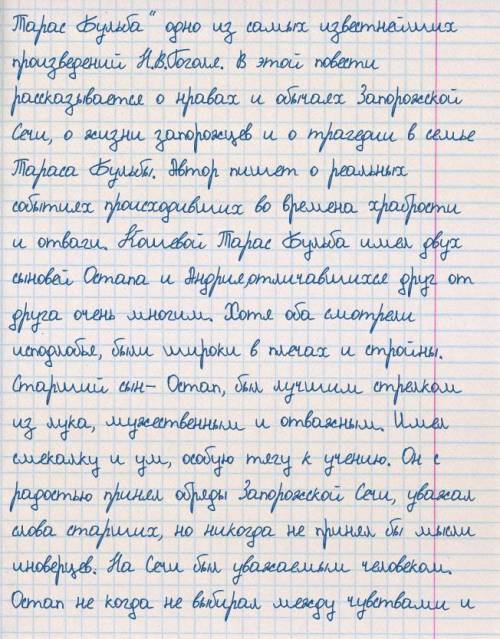 Тарас Бульба" одно из самых известнейших
произведений Н.В.Гоголя. В этой повести
рассказывается о нравах и обычаях Запорожской
Сечи, о жизни запорожцев и о трагедии в семье
Тараса Бульбы. Автор пишет о реальных
событиях происходивших во времена храбрости
и отваги. Кошевой Тарас Бульба имел двух
сыновей Остапа и Андрия,отличавшихся друг от
друга очень многим. Хотя оба смотрели
исподлобья, были широки в плечах и стройны.
Старший сын- Остап, был лучшим стрелком
из лука, мужественным и отважным. Имел
смекалку и ум, особую тягу к учению. Он с
радостью принял обряды Запорожской Сечи, уважал
слова старших, но никогда не принял бы мысли
иноверцев. На Сечи был уважаемым человеком.
Остап не когда не выбирал между чувствами и